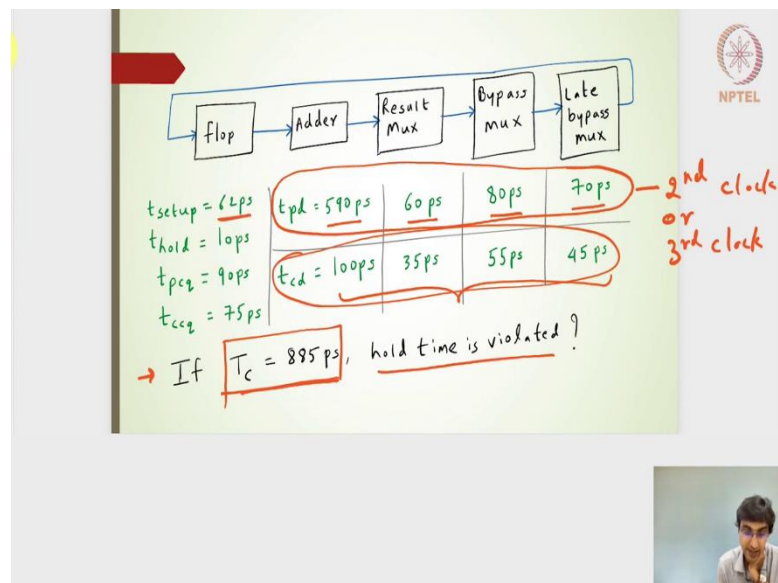 NPTEL
flop
Adder
Result
Mux
Bypass
mux
Late
bypass
mux
t_setup = 62ps
t_hold = 10ps
t_pcq = 90ps
t_ccq = 75ps
t_pd = 590ps 60ps 80ps 70ps
t_cd = 100ps 35ps 55ps 45ps
2nd clock
or
3rd clock
→ If T_c = 885ps, hold time is violated?